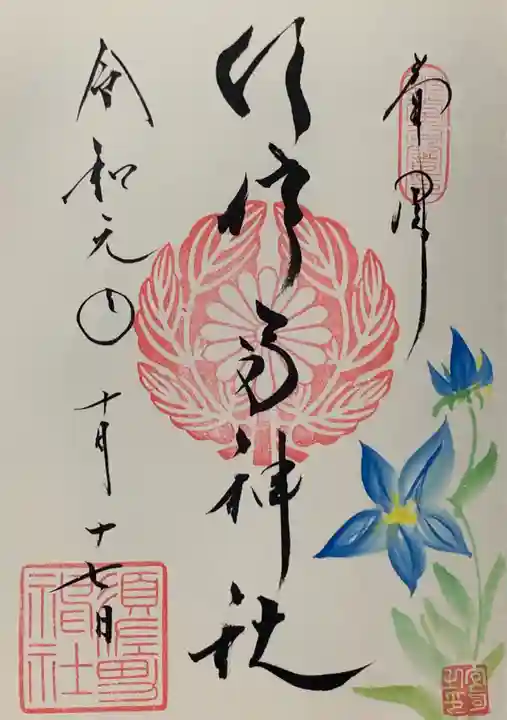 奉拝
須佐男神社
令和元年十月十七日
須佐男
神社